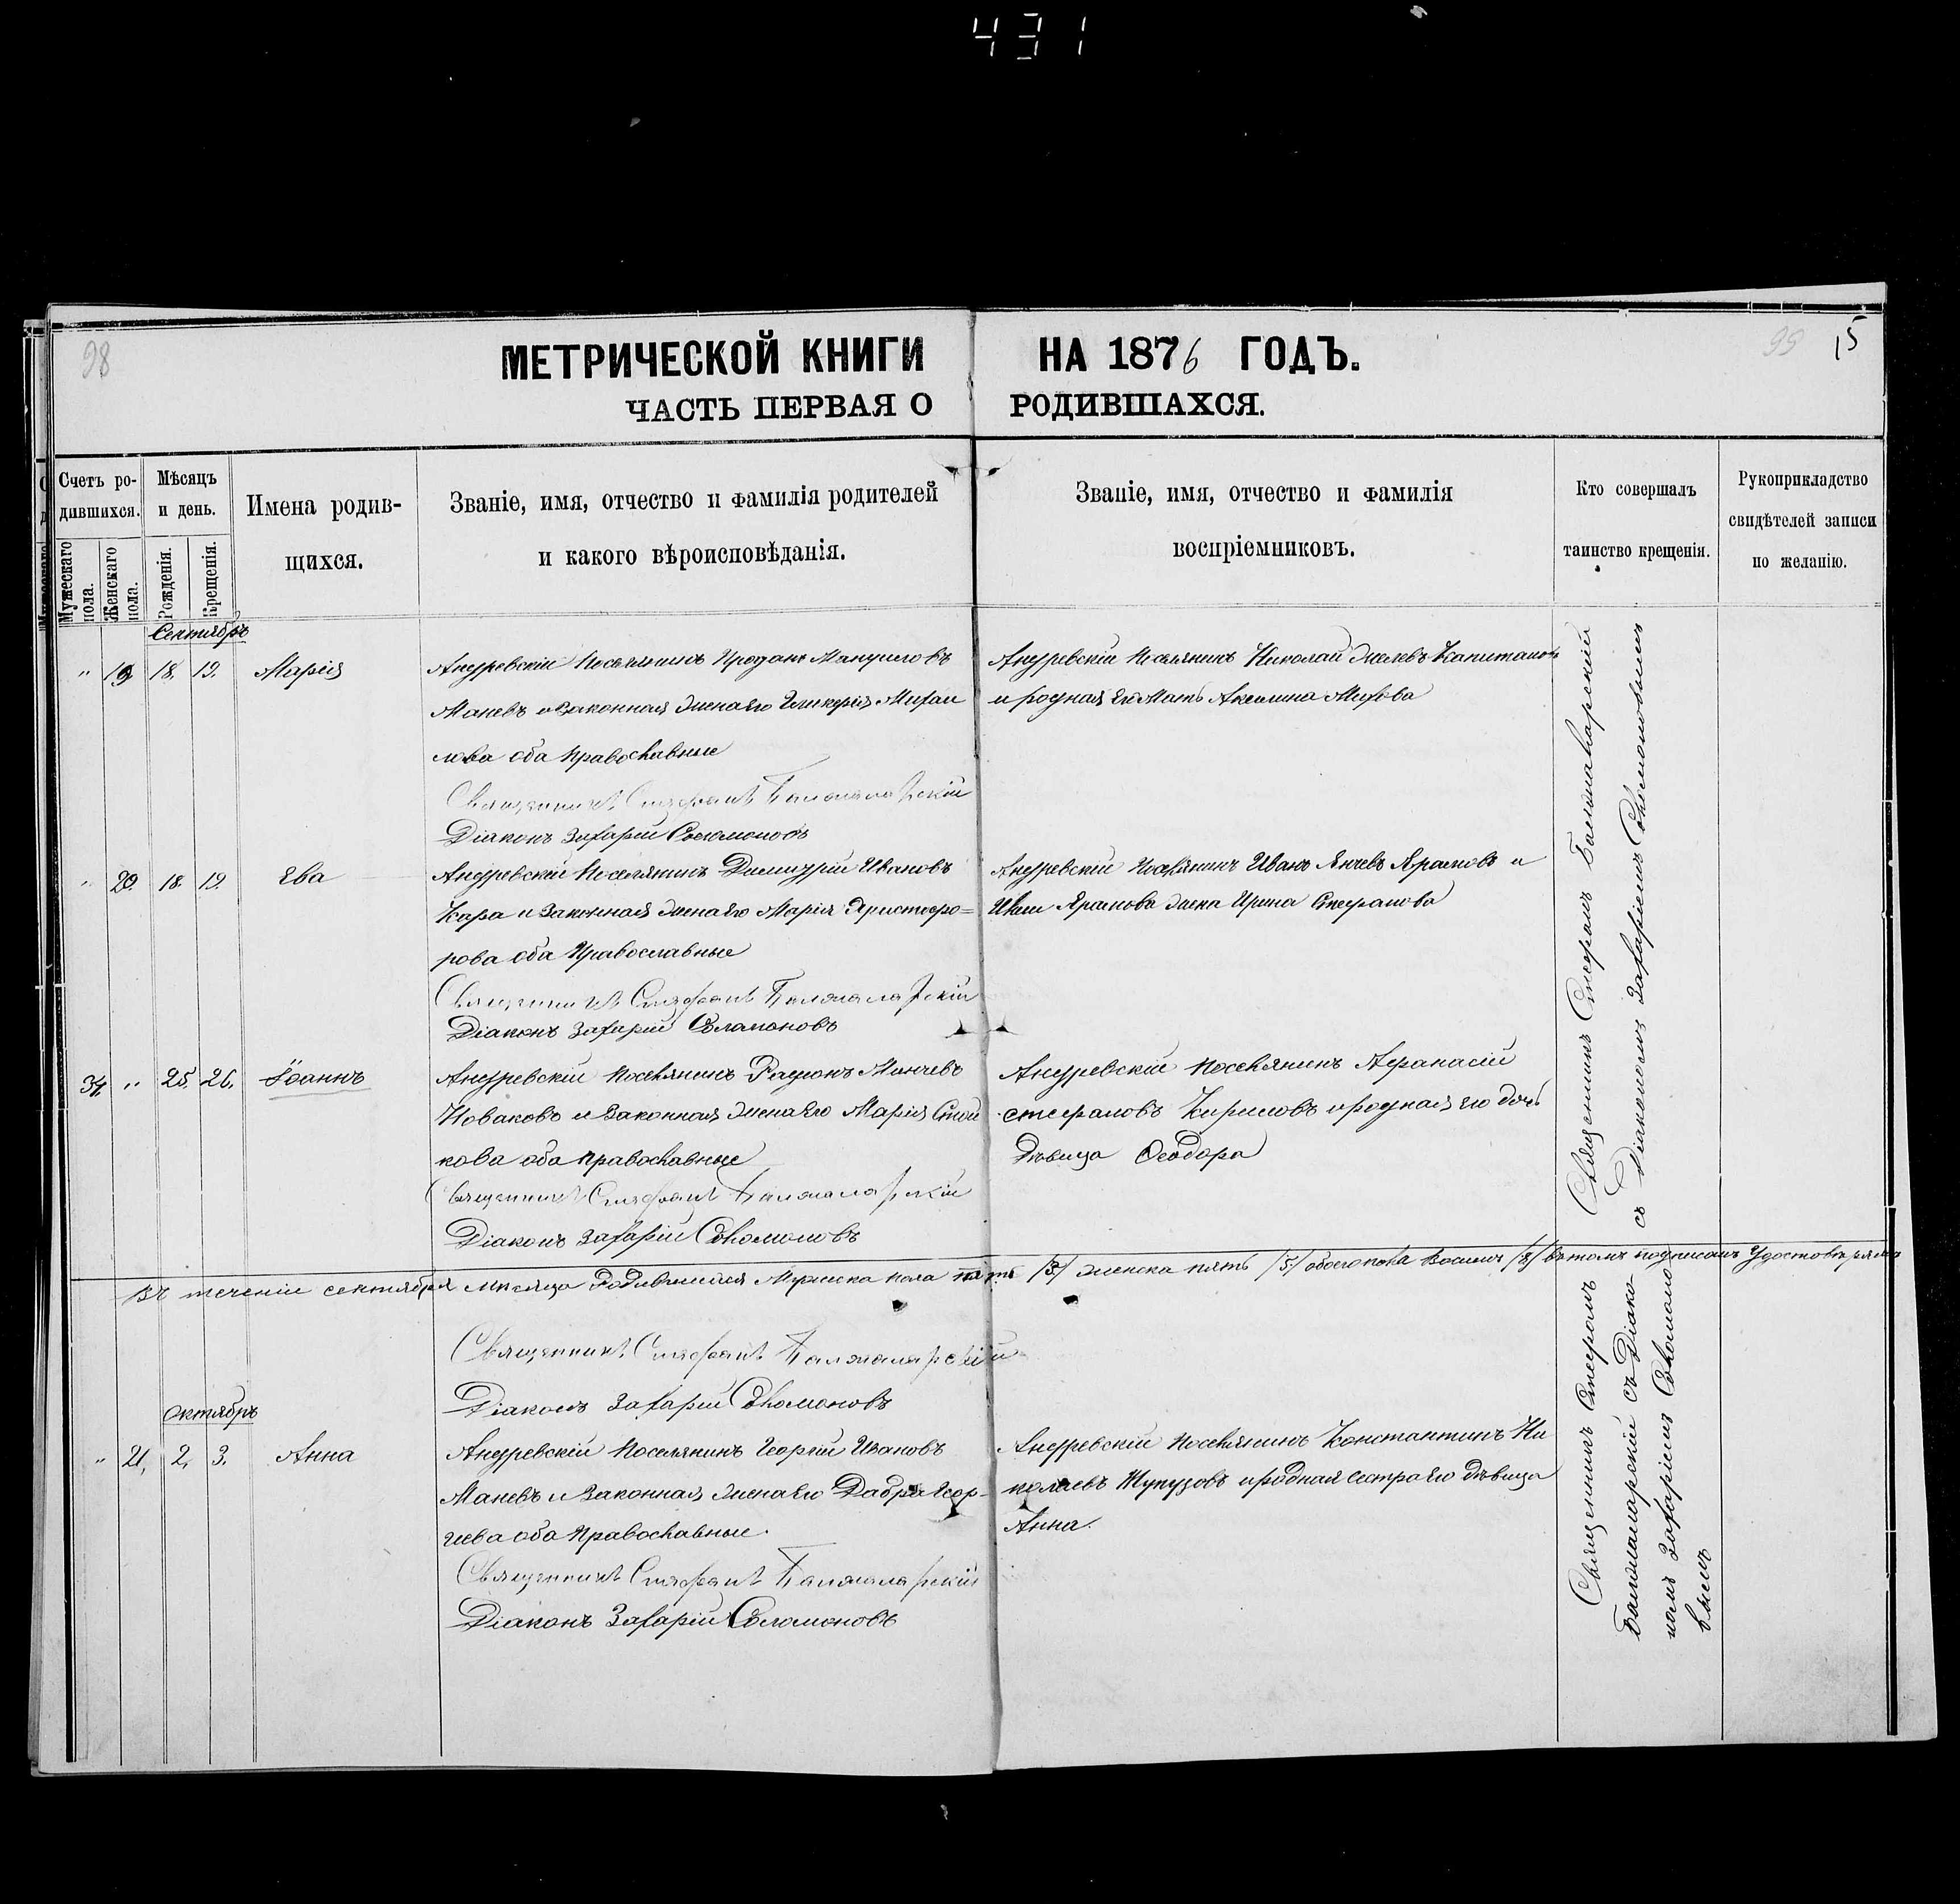 431
98
99
15
МЕТРИЧЕСКОЙ КНИГИ НА 1876 ГОДЪ.
ЧАСТЬ ПЕРВАЯ О РОДИВШАХСЯ.
Счетъ ро-
дившихся.
Мужескаго пола.
Женскаго пола.
Мѣсяцъ
и день.
Рожденія.
Крещенія.
Имена родив-
щихся.
Званіе, имя, отчество и фамилія родителей
и какого вѣроисповѣданія.
Званіе, имя, отчество и фамилія
воспріемниковъ.
Кто совершалъ
таинство крещенія.
Рукоприкладство
свидѣтелей записи
по желанію.
Сентябрь
" 19 18. 19. Марія
Ануревскій Поселянинъ Проданъ
Маневъ и Законная жена его Гликерія Михаи
лова оба Православные
Священникъ Стефанъ
Діаконъ Захарій Соломоновъ
Ануревскій Поселянинъ Николай
и родная его Мать Акелина
" 20. 18. 19. Ева
Ануревскій Поселянинъ Димитрій Ивановъ
Кара и Законная жена его Марія Христофо=
рова оба Православные
Священникъ Стефанъ
Діаконъ Захарій Соломоновъ
Ануревскій Поселянинъ Иванъ Янчевъ и
жена Ирина Стефанова
34, " 25. 26. Іоаннъ
Ануревскій Поселянинъ Родіонъ Минчевъ
Новаковъ и Законная жена его Марія Стой
кова оба Православные
Священникъ Стефанъ
Діаконъ Захарій Соломоновъ
Ануревскій Поселянинъ Афанасій
Стефановъ Кириловъ и родная его дочь
Дѣвица Ѳеодора
Священникъ Стефанъ
съ Діакономъ Захаріемъ Соломоновымъ
Въ теченіи сентября мѣсяца Родившихся Мужска пола /3/ женска пять /5/ обоего пола Восемь /8/ въ томъ подписомъ Удостовѣряемъ
Священникъ Стефанъ
Діаконъ Захарій Соломоновъ
Октябрь
" 21, 2, 3. Анна
Ануревскій Поселянинъ Георгій Ивановъ
Маневъ и Законная жена его Добра Геор-
гиева оба Православные.
Священникъ Стефанъ
Діаконъ Захарій Соломоновъ
Ануревскій Поселянинъ Константинъ Ни
колаевъ и родная сестра его дѣвица
Анна.
Священникъ Стефанъ
съ Діако
номъ Захаріемъ Соломоно
вымъ